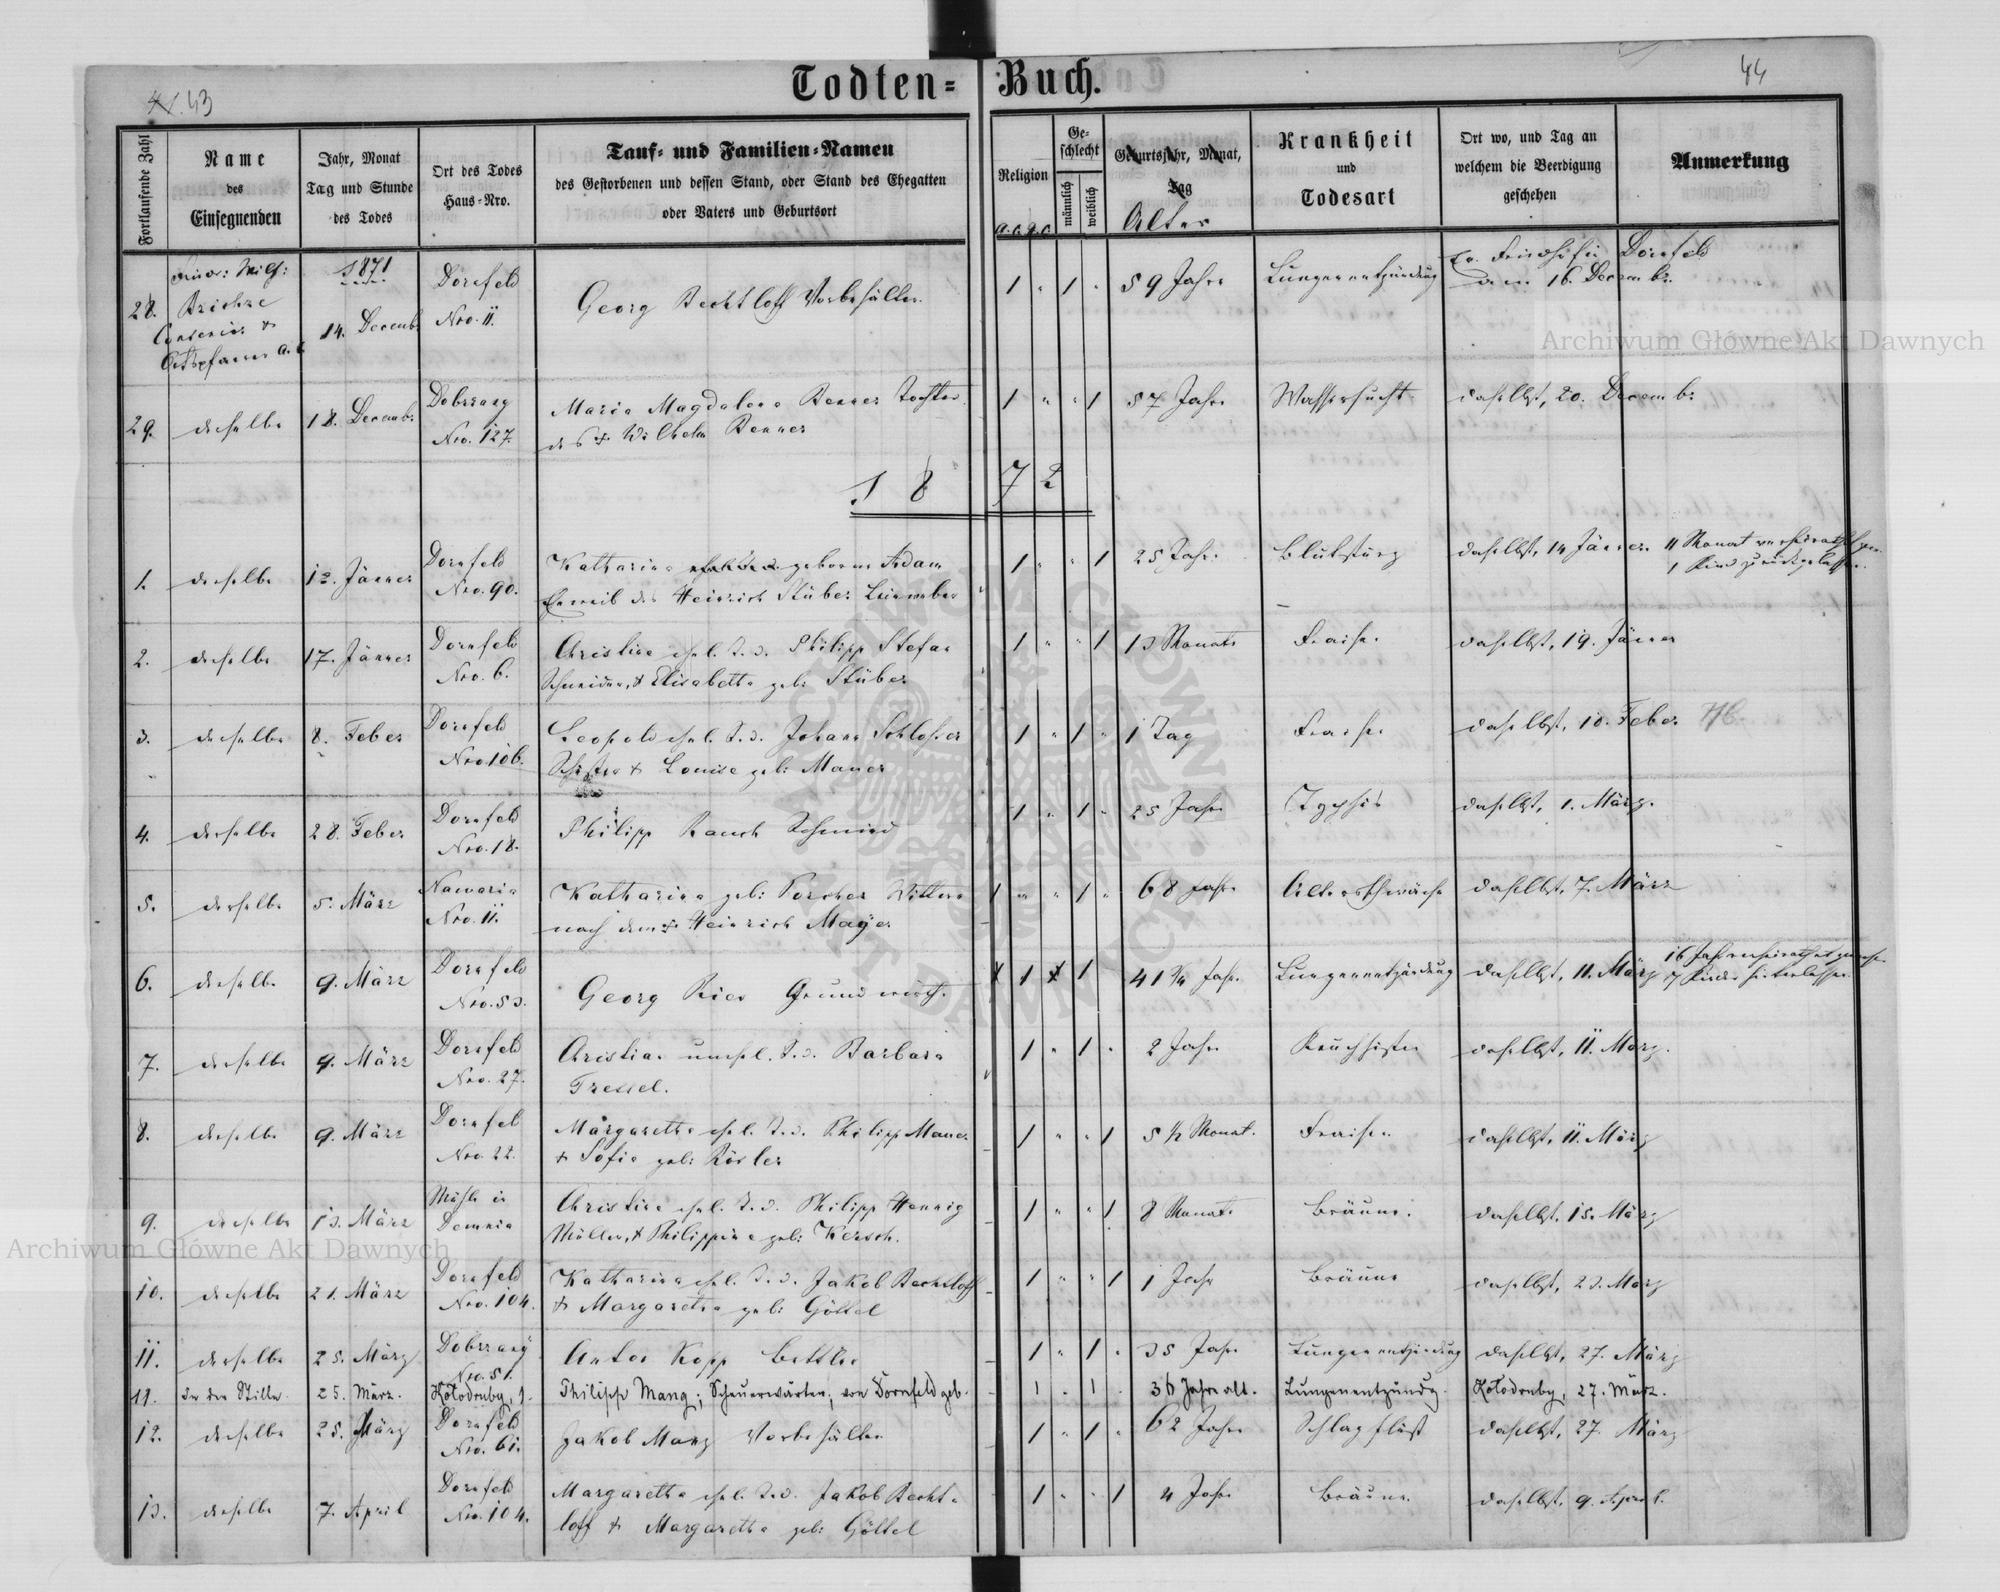 Todten=Buch.
43
44
Fortlaufende Zahl
Name
des
Einsegnenden
Jahr, Monat
Tag und Stunde
des Todes
Ort des Todes
Haus=Nro.
Tauf= und Familien=Namen
des Gestorbenen und dessen Stand, oder Stand des Ehegatten
oder Vaters und Geburtsort
Religion
Ge=
schlecht
männlich
weiblich
Geburtsjahr, Monat,
Tag
Alter
Krankheit
und
Todesart
Ort wo, und Tag an
welchem die Beerdigung
geschehen
Anmerkung
1871
28.
14. Decemb.
Dornfeld
Nro. 11.
Georg Bechtloff Vorbehälter
1 " 1 "
59 Jahre
Lungenentzündung
Dornfeld
am 16. Decembr.
29. derselbe 18. Decemb.
Dobrzany
Nro. 127.
Maria Magdalena Renner Tochter
des + Wilhelm Renner
1 " " 1
57 Jahre
Wassersucht
daselbst, 20. Decembr.
1872
1. derselbe 12. Jänner
Dornfeld
Nro. 90.
Katharina geborne Adam
Eheweib des Heinrich Stüber Leinweber
1 " " 1
25 Jahre
Blutsturz
daselbst, 14 Jänner
11 Monat verheirathet gew.
1 Kind zurückgelassen.
2. derselbe 17. Jänner
Dornfeld
Nro. 6.
Christine ehel. T. d. Philipp Stefan
Schneider, + Elisabetha geb: Stüber
1 " " 1
13 Monate
Fraisen
daselbst, 19. Jänner
3. derselbe 8. Feber
Dornfeld
Nro 106.
Leopold ehel. S. d. Johann Schlosser
Schuster + Louise geb: Mauer
1 " 1 "
1 Tag
Fraisen
daselbst, 10. Feber
4. derselbe 28. Feber
Dornfeld
Nro. 18.
Philipp Rauch Schmied
1 " 1 "
25 Jahre
Typhus
daselbst, 1. März.
5. derselbe 5. März
Nawaria
Nro. 11.
Katharina geb: Porscher Wittwe
nach dem + Heinrich Mayer
68 Jahre
Altersschwäche
daselbst, 7. März
6. derselbe 9. März
Dornfeld
Nro. 53.
Georg Ried Grundwirth.
41 ¾ Jahr.
Lungenentzündung
daselbst, 11. März
16 Jahr verheirathet gewesen
7 Kinder hinterlassen
7. derselbe 9. März
Dornfeld
Nro. 27.
Christian unehel. S. d. Barbara
Tressel.
1 " 1 "
2 Jahre
Keuchhusten
daselbst, 11. März.
8. derselbe 9. März
Dornfeld
Nro. 22.
Margaretha ehel. T. d. Philipp Mauer
+ Sofie geb: Rösler
1 " " 1
5 ½ Monat.
Fraisen
daselbst, 11. März
9. derselbe 13. März
Mühle in
Demnia
Christine ehel. T. d. Philipp Hennig
Müller, + Philippine geb: Kersch.
1 " " 1
8 Monate
Bräune.
daselbst, 15. März
10. derselbe 21. März
Dornfeld
Nro. 104.
Katharina ehel. T. d. Jakob Bechtloff
+ Margaretha geb: Göttel
1 " " 1
1 Jahr
Bräune
daselbst, 23. März
11. derselbe 25. März
Dobrzany
Nro. 51.
Anton Kopp Bettler
1 " 1 "
35 Jahre
Lungenentzündung
daselbst, 27. März
11. 25. März.
Philipp Mang; von Dornfeld geb.
1 . 1 .
36 Jahre alt.
Lungenentzündg.
27. März.
12. derselbe 25. März
Dornfeld
Nro. 61.
Jakob Manz Vorbehälter
1 " 1 "
62 Jahre
Schlagfluß
daselbst, 27. März
13. derselbe 7. April
Dornfeld
Nro. 104.
Margaretha ehel. T. d. Jakob Becht-
loff + Margaretha geb: Göttel
1 " " 1
4 Jahre
Bräune
daselbst, 9. April.
Archiwum Główne Akt Dawnych
Archiwum Główne Akt Dawnych